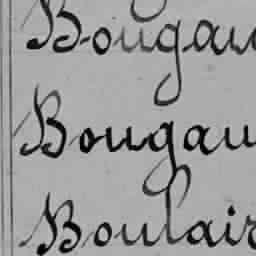 Bougau
Bougau
Boulair